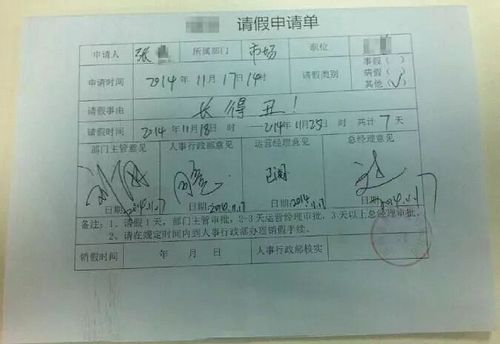 请假申请单
申请人 张 所属部门 市场 职位
申请时间 2014年11月17日14时 请假类别 事假( ) 病假( ) 其他(√)
请假事由 长得丑!
请假时间 2014年11月18日 时 — 2014年11月25日 时 共计7天
部门主管意见 人事行政部意见 运营经理意见 总经理意见
已阅
日期: 2014.11.17 日期: 2014.11.17 日期: 2014 11.17 日期: 2014.11.17
备注:1、请假1天,部门主管审批,2-3天运营经理审批,3天以上总经理审批。
2、请在规定时间内到人事行政部办理销假手续。
销假时间 年 月 日 人事行政部核实